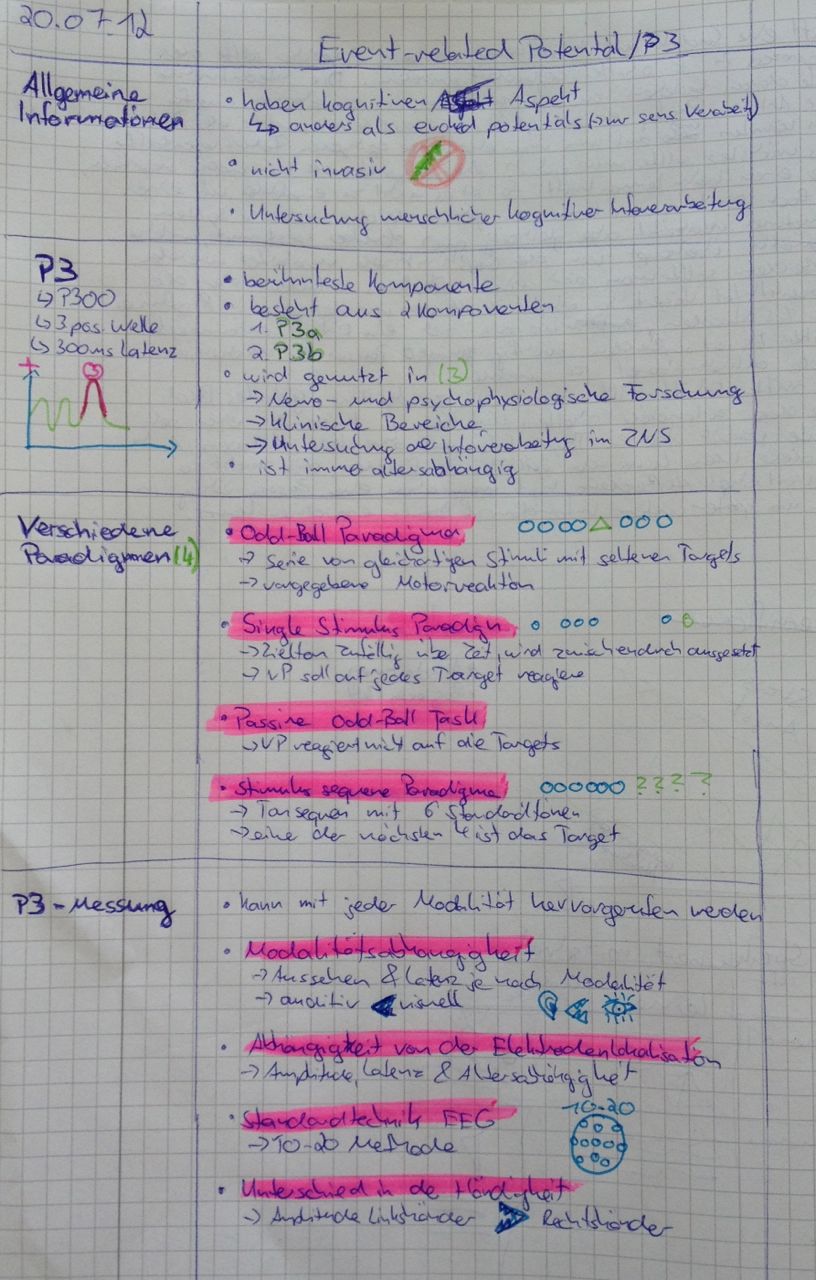 20.07.12
Event-related Potential/P3
Allgemeine
Informationen
• haben kognitiven Aspekt
↳ anders als evoked potentials (nur sens. Verarbeit)
• nicht invasiv
• Untersuchung menschlicher kognitiver Infoverarbeitung
P3
↳ P300
↳ 3 pos. Welle
↳ 300ms Latenz
+
3
• berühmteste Komponente
• besteht aus 2 Komponenten
1. P3a
2. P3b
• wird genutzt in (3)
→ Neuro- und psychophysiologische Forschung
→ Klinische Bereiche
→ Untersuchung der Infoverarbeitung im ZNS
• ist immer altersabhängig
Verschiedene
Paradigmen (4)
• Odd-Ball Paradigma
→ Serie von gleichartigen Stimuli mit seltenen Targets
→ vorgegebene Motorreaktion
• Single Stimulus Paradigm
→ Zielton zufällig über Zeit, wird zwischendurch ausgesetzt
→ VP soll auf jedes Target reagiere
• Passive Odd-Ball Task
↳ VP reagiert nicht auf die Targets
• Stimulus sequenz Paradigma ????
→ Tonsequenz mit 6 Standardtönen
→ eine der nächsten 4 ist das Target
P3-Messung
• kann mit jeder Modalität hervorgerufen werden
• Modalitätsabhängigkeit
→ Aussehen & Latenz je nach Modalität
→ auditiv < visuell
• Abhängigkeit von der Elektrodenlokalisation
→ Amplitude, Latenz & Altersabhängigkeit
• Standardtechnik EEG
10-20
→ 10-20 Methode
• Unterschied in de Händigkeit
→ Amplitude Linkshänder > Rechtshänder